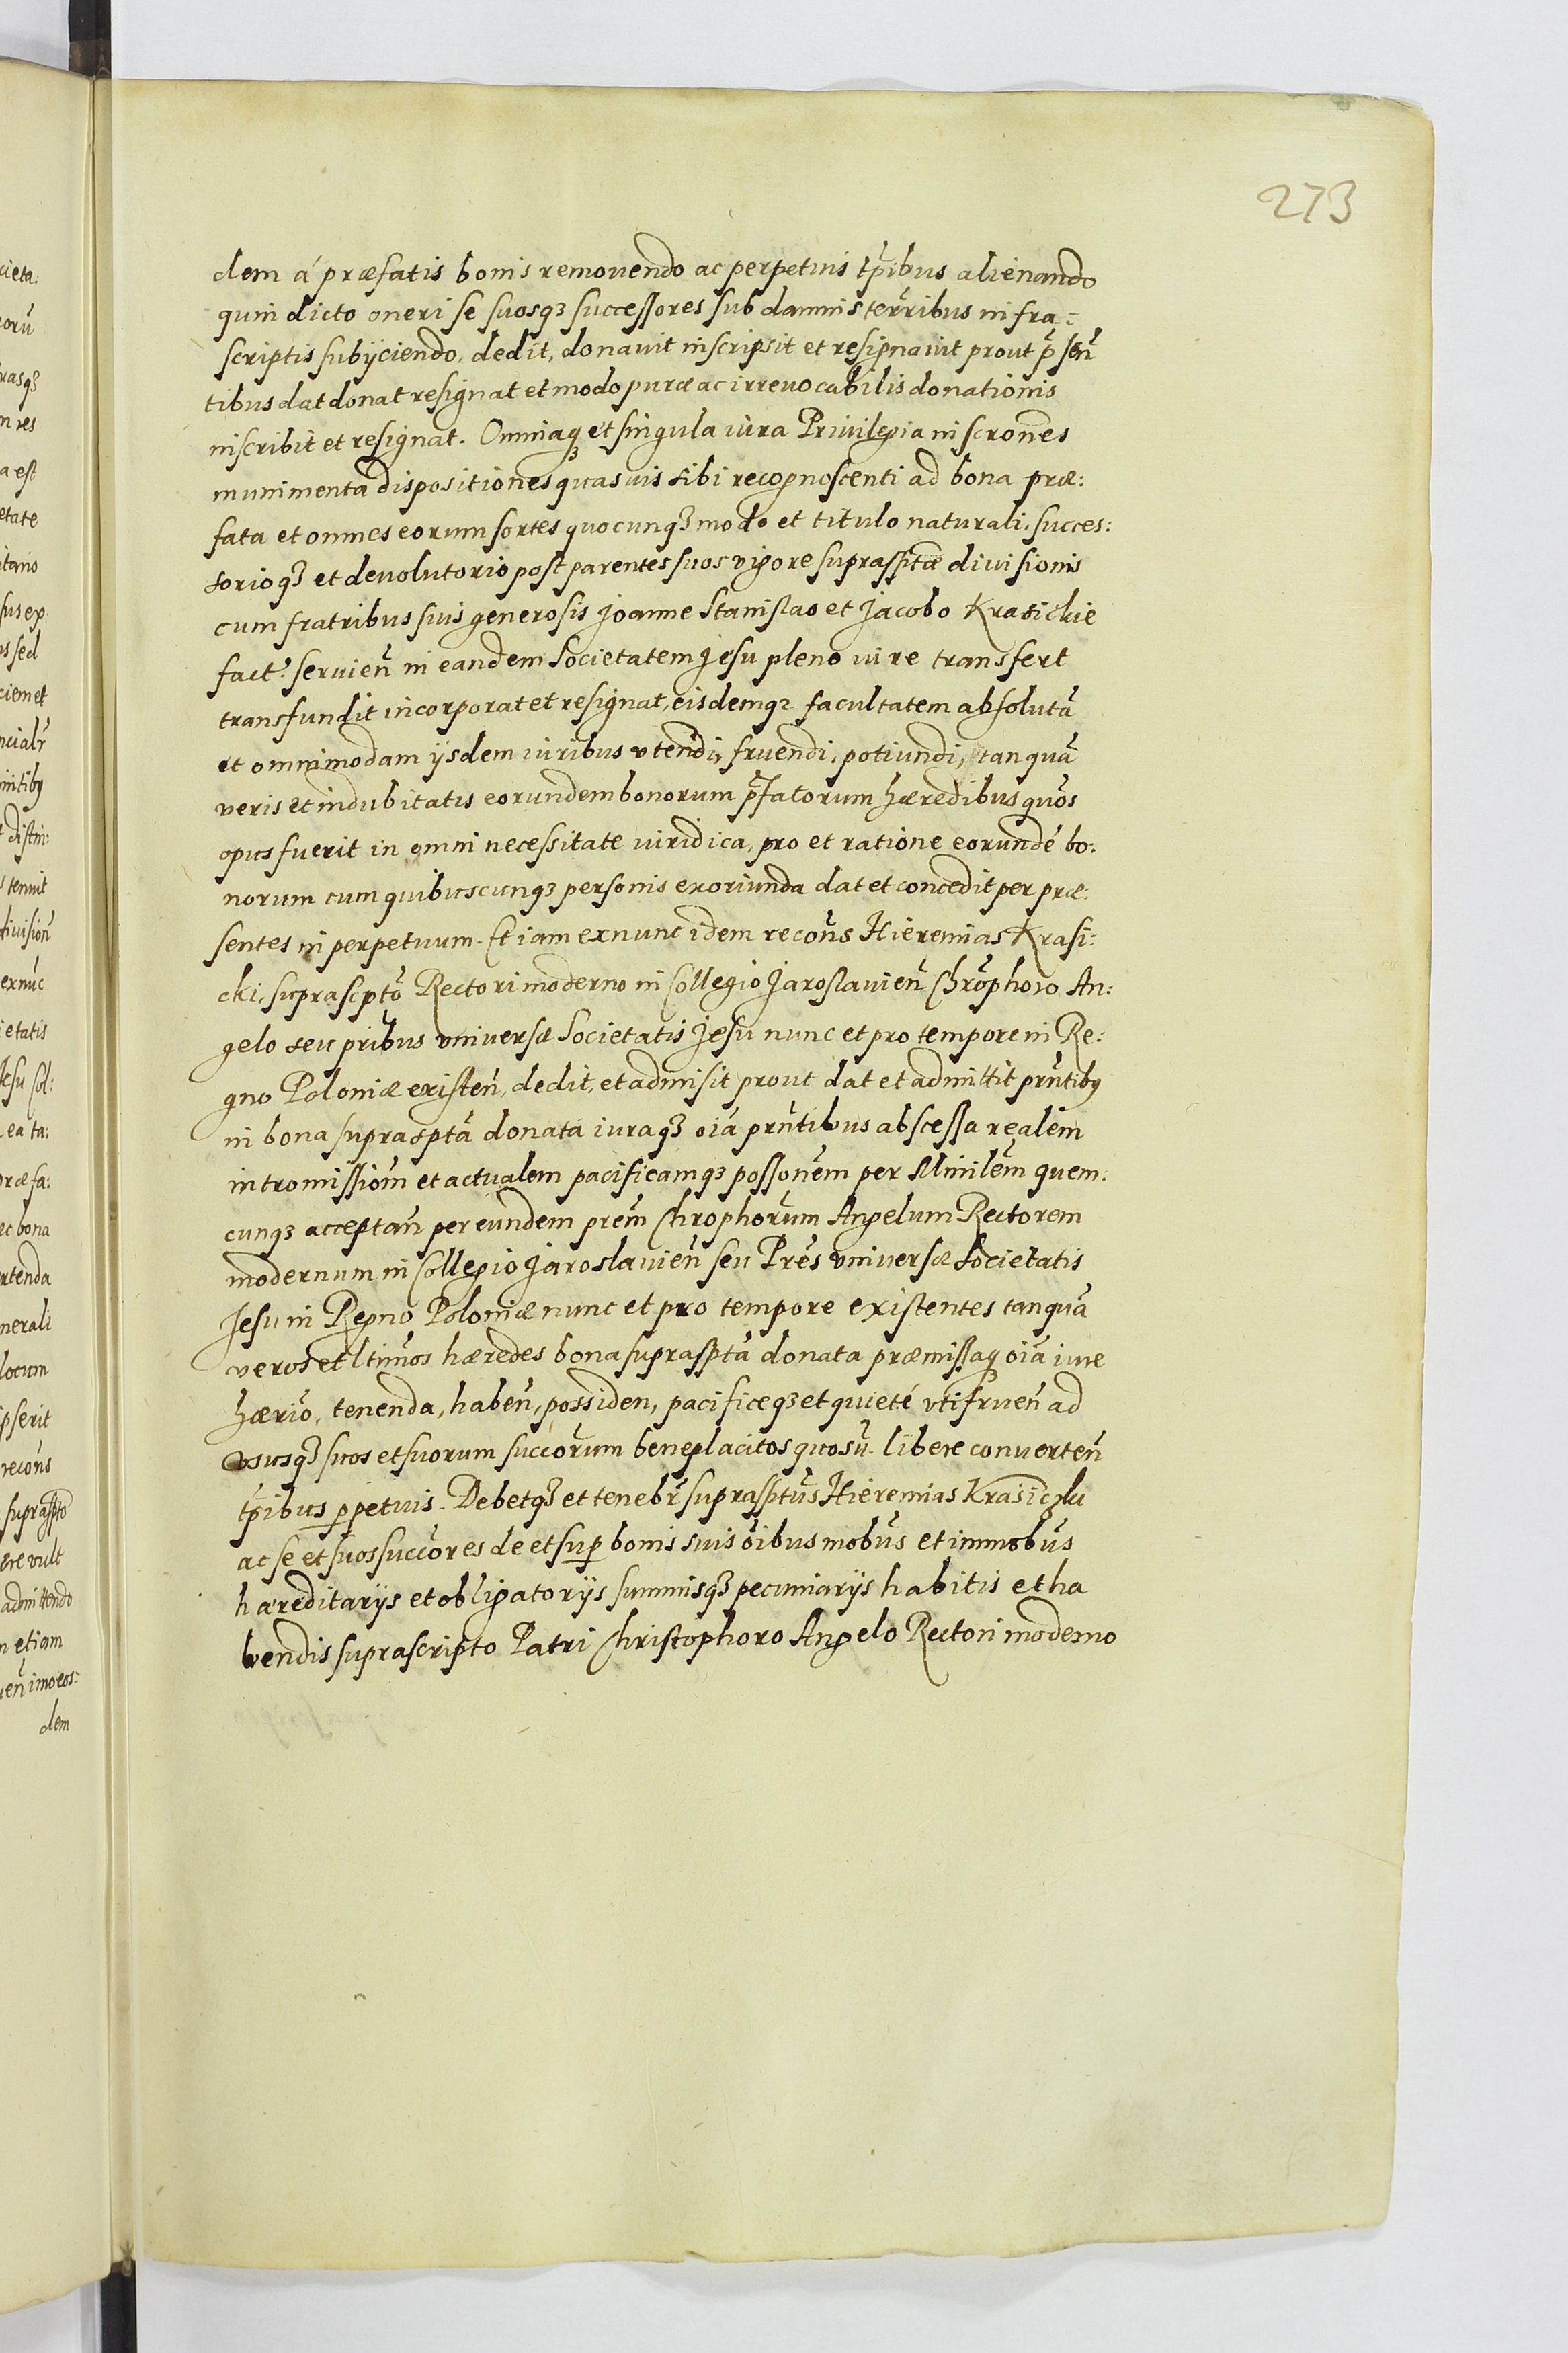 273
dem á præfatis bonis remouendo ac perpetuis tp̃ibus alienando
quin dicto oneri se suosqꝫ successores sub damnis terr̃ibus infra=
scriptis subÿciendo, dedit, donauit inscripsit et resignauit prout p̃sen̄
tibus dat donat resignat et modo puræ ac irreuocabilis donationis
inscribit et resignat. Omniaqꝫ et singula iura Priuilegia inscrones
munimenta dispositiones quasuis sibi recognoscenti ad bona præ:
fata et omnes eorum sortes quocunqꝫ modo et titulo naturali, succes:
sorioqꝫ et deuolutorio post parentes suos vigore supraspitæ diuisionis
cum fratribus suis generosis Joanne Stanislao et Jacobo Krasickie
fact: seruien̄ in eandem Societatem Jesu pleno iure transfert
transfundit incorporat et resignat, eisdemqꝫ facultatem absolutā
et omnimodam ÿsdem iuribus vtendi, fruendi, potiundi, tanquā
veris et indubitatis eorundem bonorum p̃fatorum hæredibus quōs
opus fuerit in omni necessitate iuridica, pro et ratione eorundē bo:
norum cum quibuscunqꝫ personis exoriunda dat et concedit per præ:
sentes in perpetuum. Et iam exnunc idem recon̄s Hieremias Krasi:
cki, suprascptō Rectori moderno in Collegio Jaroslauien̄ Chrōphoro An:
gelo seu pribus vniuersæ Societatis Jesu nunc et pro tempore in Re:
gno Poloniæ existen̄, dedit, et admisit prout dat et admittit prūtibꝫ
in bona supraspta donata iuraqꝫ oīa prūtibus abscessa realem
intromissiōm et actualem pacificamqꝫ possonēm per Minilēm quem:
cunqꝫ acceptan̄ per eundem prem̄ Chrophorum Angelum Rectorem
modernum in Collegio Jaroslauien̄ seu Prēs vniuersæ Societatis
Jesu in Regno Poloniæ nunc et pro tempore existentes tanquā
veros et ltimōs hæredes bona supraspta donata præmissaqꝫ oīa iure
hæriō, tenenda, haben̄, possiden, pacificeqꝫ et quieté vtifruen̄ ad
vsusqꝫ suos et suorum succōrum beneplacitos quosū. libere conuerten̄
tp̃ibus ꝑpetuis. Debetqꝫ et tenebr̃ suprasptūs Hieremias Krasiczki
ac se et suos succōres de et suꝑ bonis suis ōibus mobūs et immobūs
hæreditarÿs et obligatorÿs summisqꝫ pecuniarÿs habitis et ha
bendis suprascripto Patri Christophoro Angelo Rectori moderno